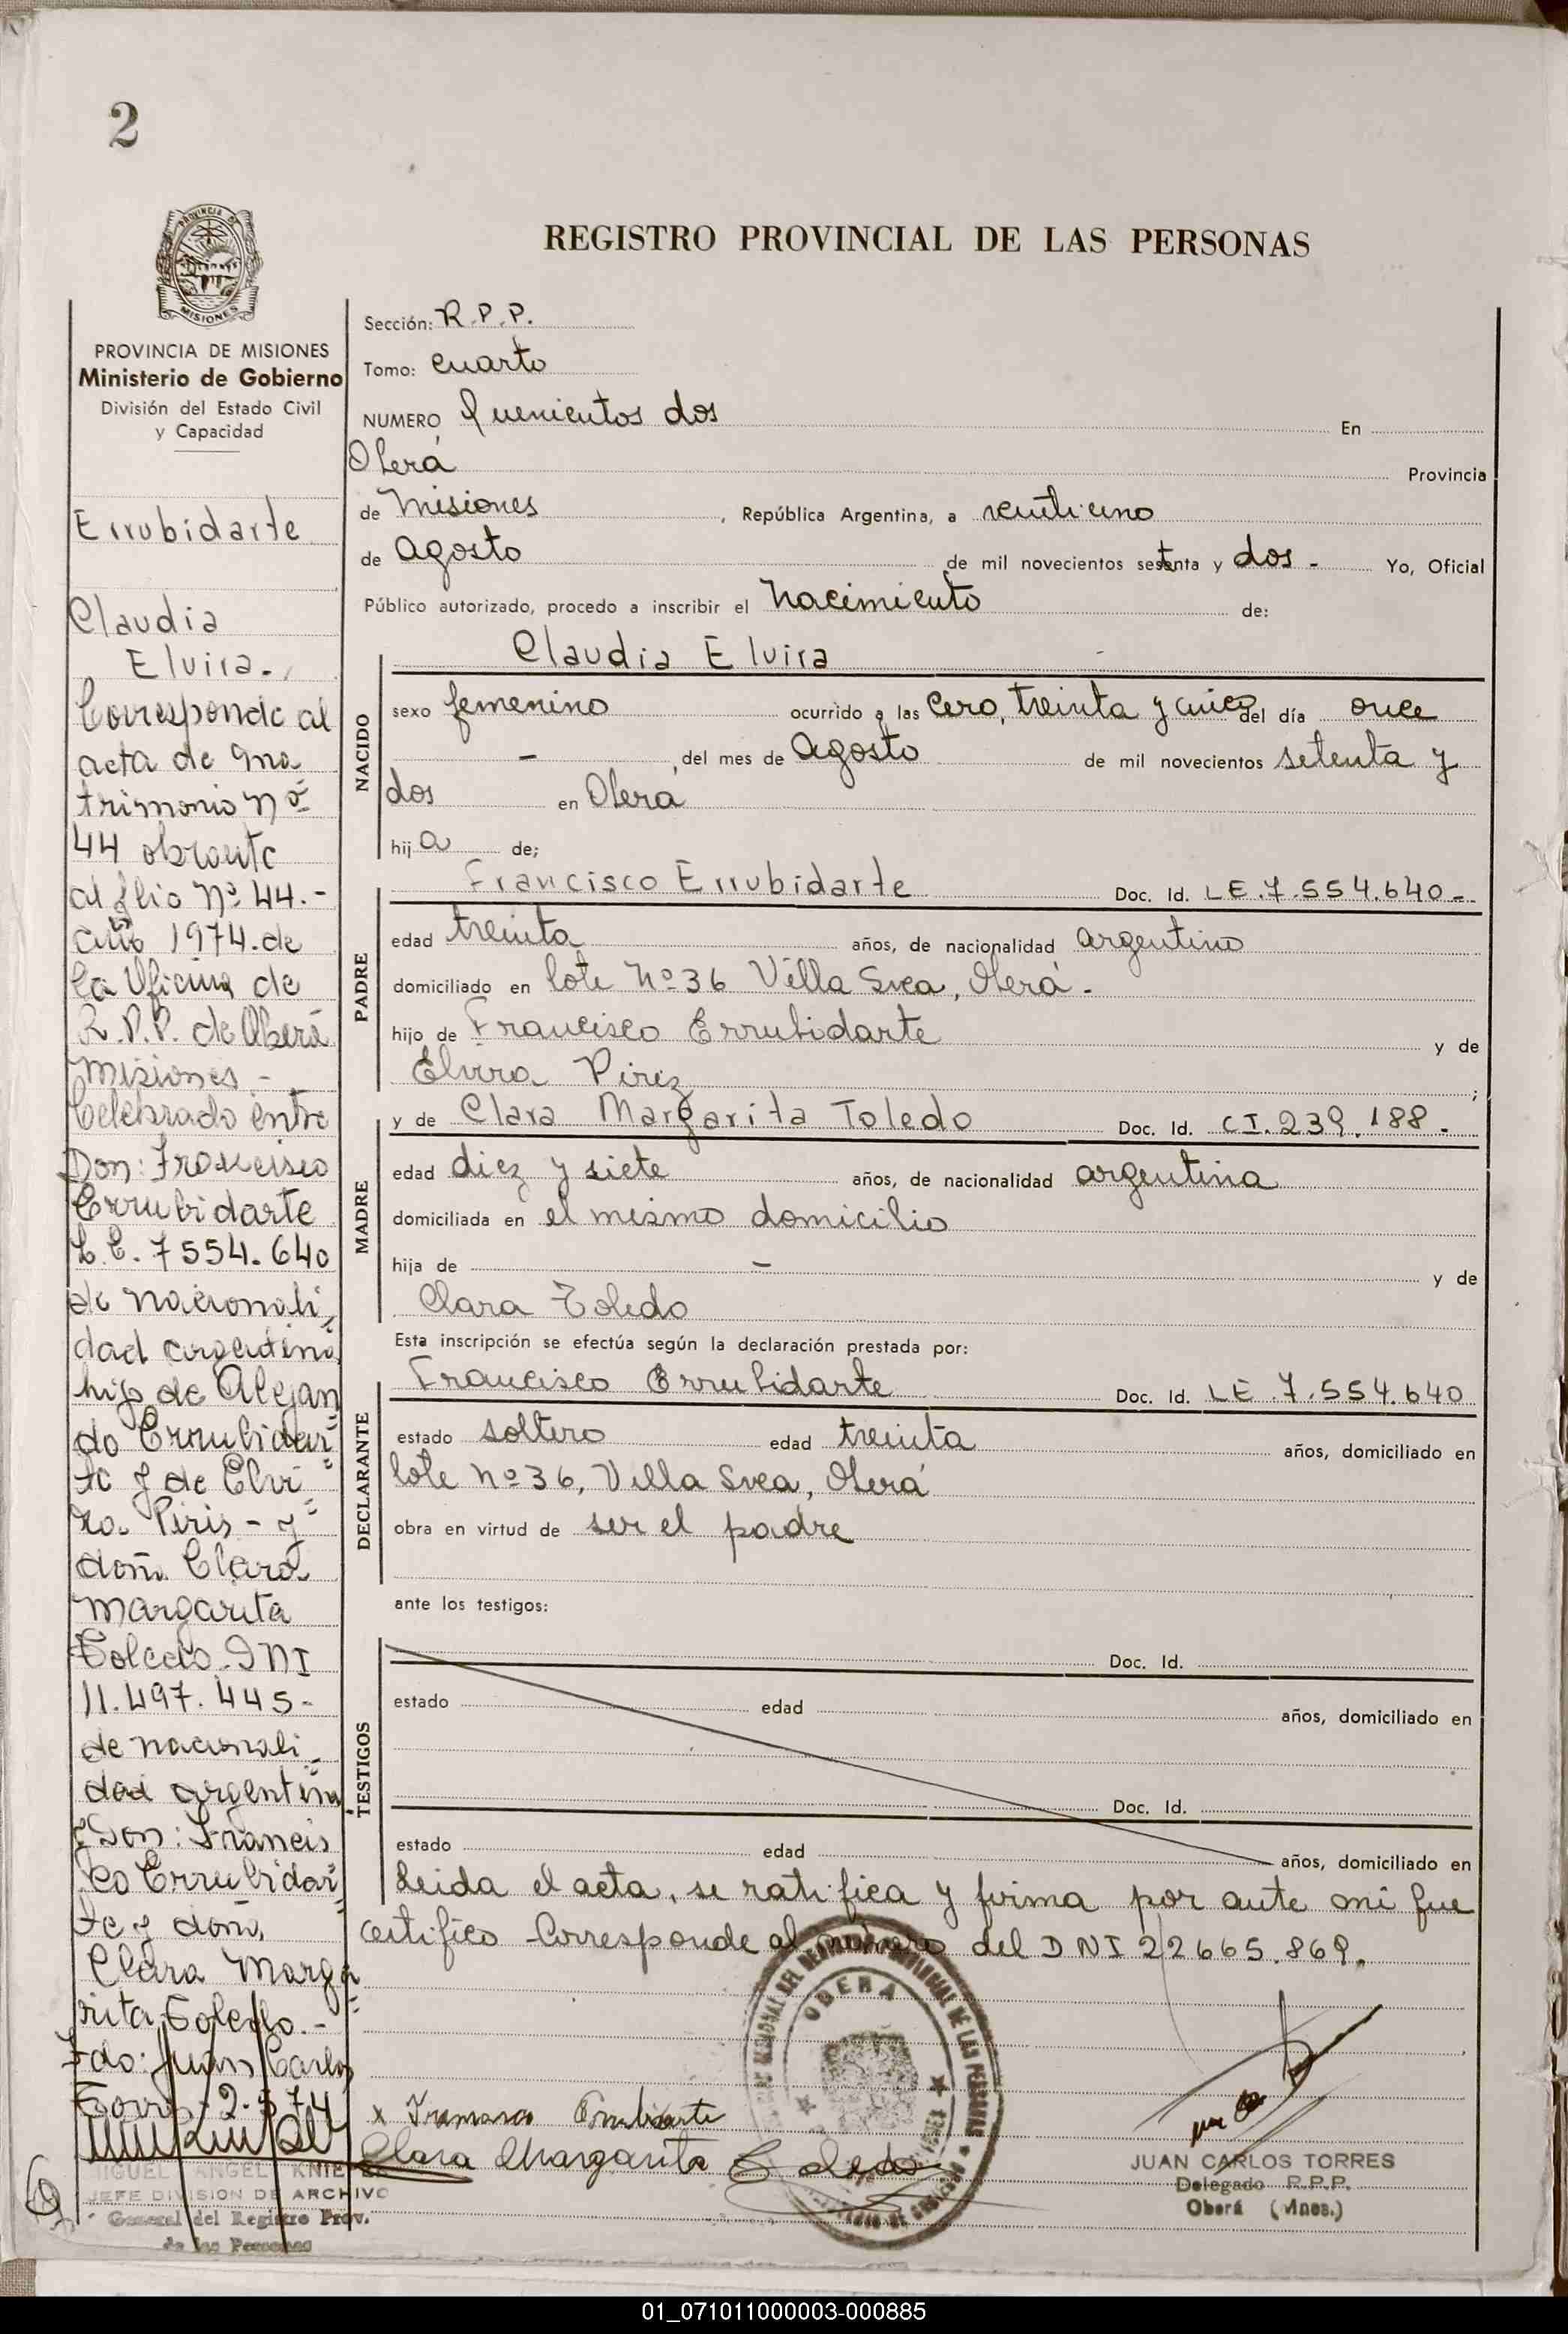 2
REGISTRO PROVINCIAL DE LAS PERSONAS
PROVINCIA DE MISIONES
Ministerio de Gobierno
División del Estado Civil
y Capacidad
Errubidarte
Claudia
Elvira.
Corresponde al
acta de ma
trimonio nº
44 obrante
al flio Nº 44.-
año 1974. de
la Oficina de
R.P.P. de Oberá
Misiones -
Celebrado entre
Don: Francisco
Errubidarte
L.E. 7554.640
de nacionali
dad argentina
hijo de Alejan
do Errubidar
te y de Elvi
ra. Piris - y
doña Clara
Margarita
Toledo. DNI
11.497.445-
de nacionali
dad argentina
y Don: Francis
co Errubidar
te y doña,
Clara Marga
rita Toledo.-
Fdo: Juan Carlos
Torres - 2-5-74
MIGUEL ANGEL KNIE
JEFE DIVISION DE ARCHIVO
General del Registro Prov.
de las Personas
Sección: R.P.P.
Tomo: cuarto
NUMERO Quinientos dos En
Oberá Provincia
de Misiones, República Argentina, a veintiuno
de Agosto de mil novecientos setenta y dos - Yo, Oficial
Público autorizado, procedo a inscribir el nacimiento de:
Claudia Elvira
NACIDO
sexo femenino ocurrido a las cero, treinta y cinco del día once
- del mes de Agosto de mil novecientos setenta y
dos en Oberá
hija de;
Francisco Errubidarte Doc. Id. LE.7.554.640-
PADRE
edad treinta años, de nacionalidad argentino
domiciliado en lote Nº 36 Villa Svea, Oberá -
hijo de Francisco Errubidarte y de
Elvira Pirez ;
y de Clara Margarita Toledo Doc. Id. CI.239.188-
MADRE
edad diez y siete años, de nacionalidad argentina
domiciliada en el mismo domicilio
hija de - y de
Clara Toledo
Esta inscripción se efectúa según la declaración prestada por:
Francisco Errubidarte Doc. Id. LE.7.554.640
DECLARANTE
estado soltero edad treinta años, domiciliado en
lote Nº 36, Villa Svea, Oberá
obra en virtud de ser el padre
ante los testigos:
Doc. Id.
TESTIGOS
estado edad años, domiciliado en
Doc. Id.
estado edad años, domiciliado en
Leida el acta, se ratifica y firma por ante mi que
certifico - Corresponde al número del DNI 22665.869.
OBERA
x Francisco Errubidarte
Clara Margarita Toledo
JUAN CARLOS TORRES
Delegado R.P.P.
Oberá (Mnes.)
01_071011000003-000885